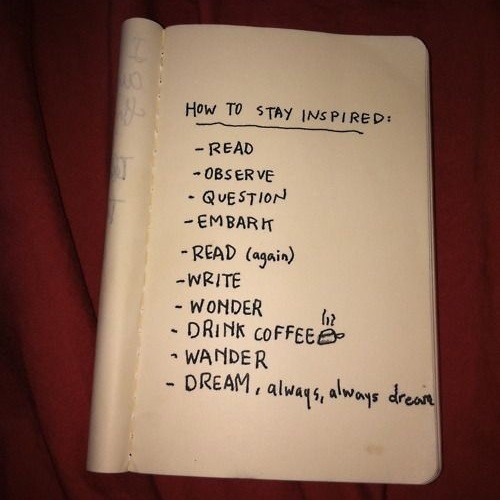 HOW TO STAY INSPIRED:
- READ
- OBSERVE
- QUESTION
- EMBARK
- READ (again)
- WRITE
- WONDER
- DRINK COFFEE
- WANDER
- DREAM, always, always dream